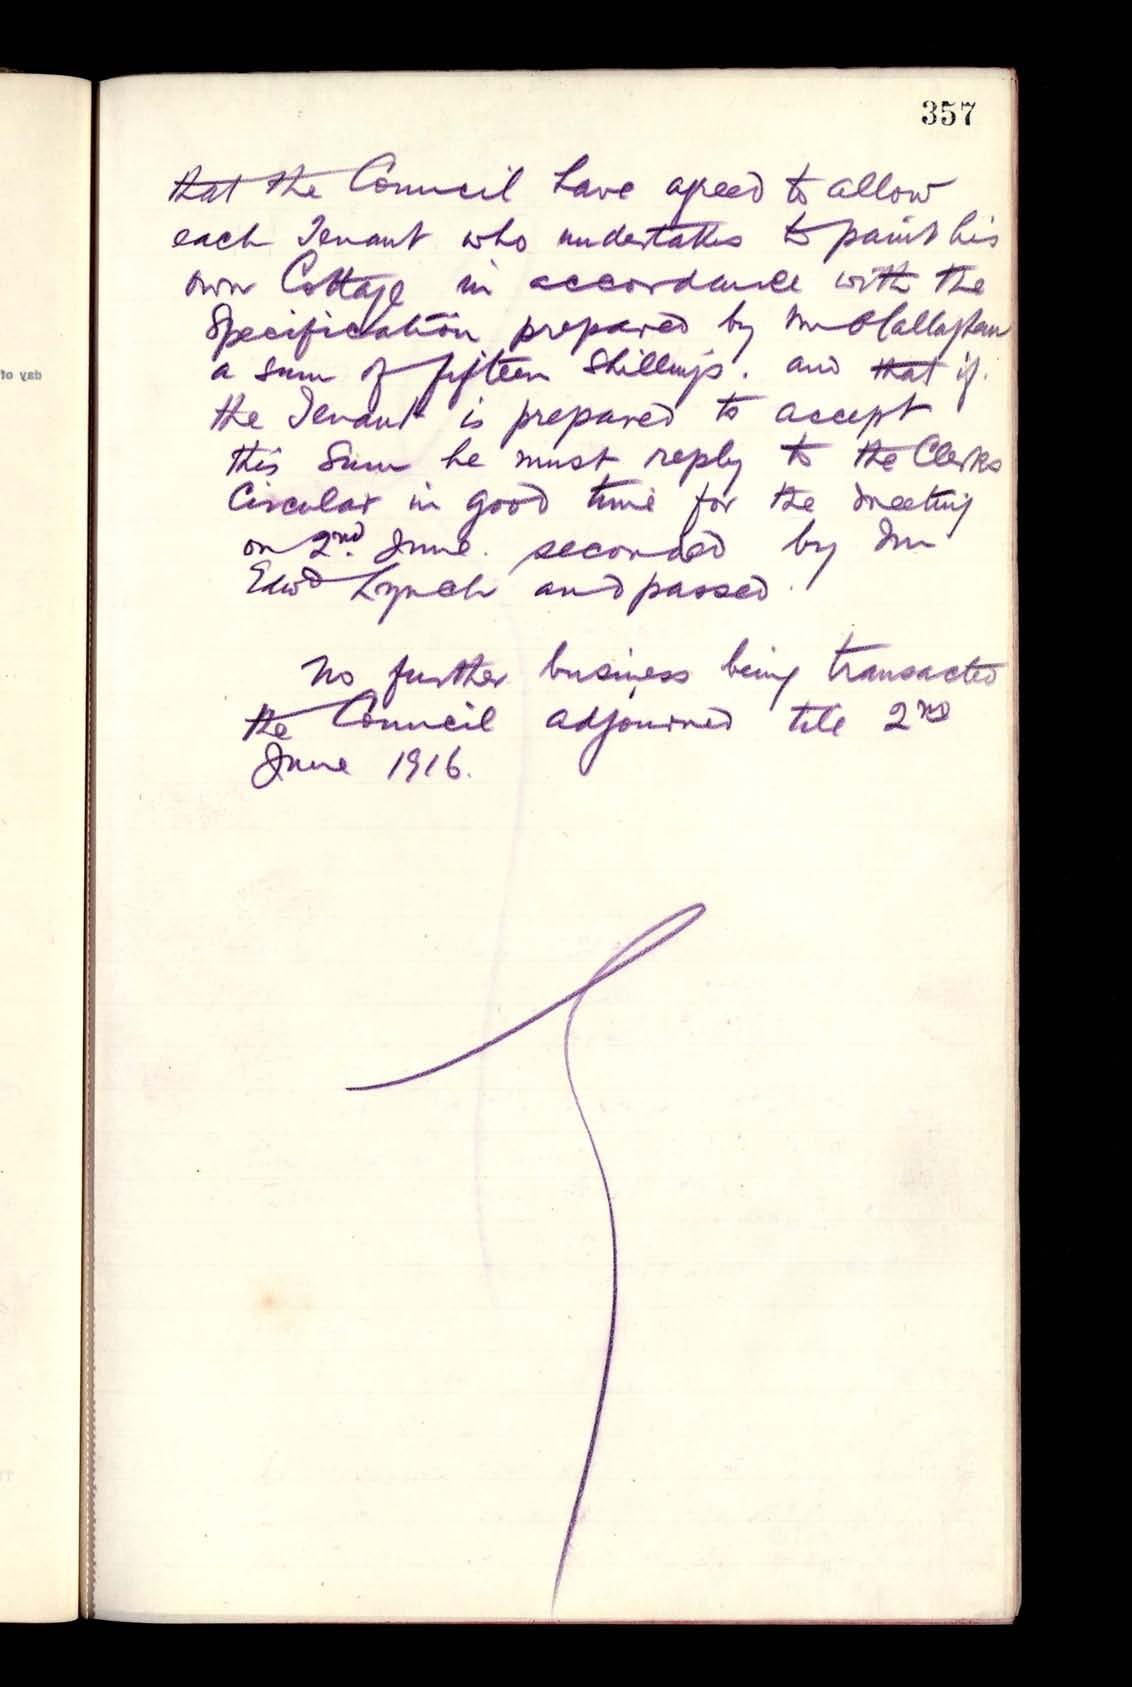 357
that the Council have agreed to allow
each Tenant who undertakes to paint his
own Cottage in accordance with the
Specification prepared by Mr O'Callaghan
a sum of fifteen Shillings. and that if
the Tenant is prepared to accept
this Sum he must reply to the Clerks
Circular in good time for the meeting
on 2nd. June. seconded by Mr
Edwd Lynch and passed.
No further business being transacted
the Council adjourned till 2nd
June 1916.
day of